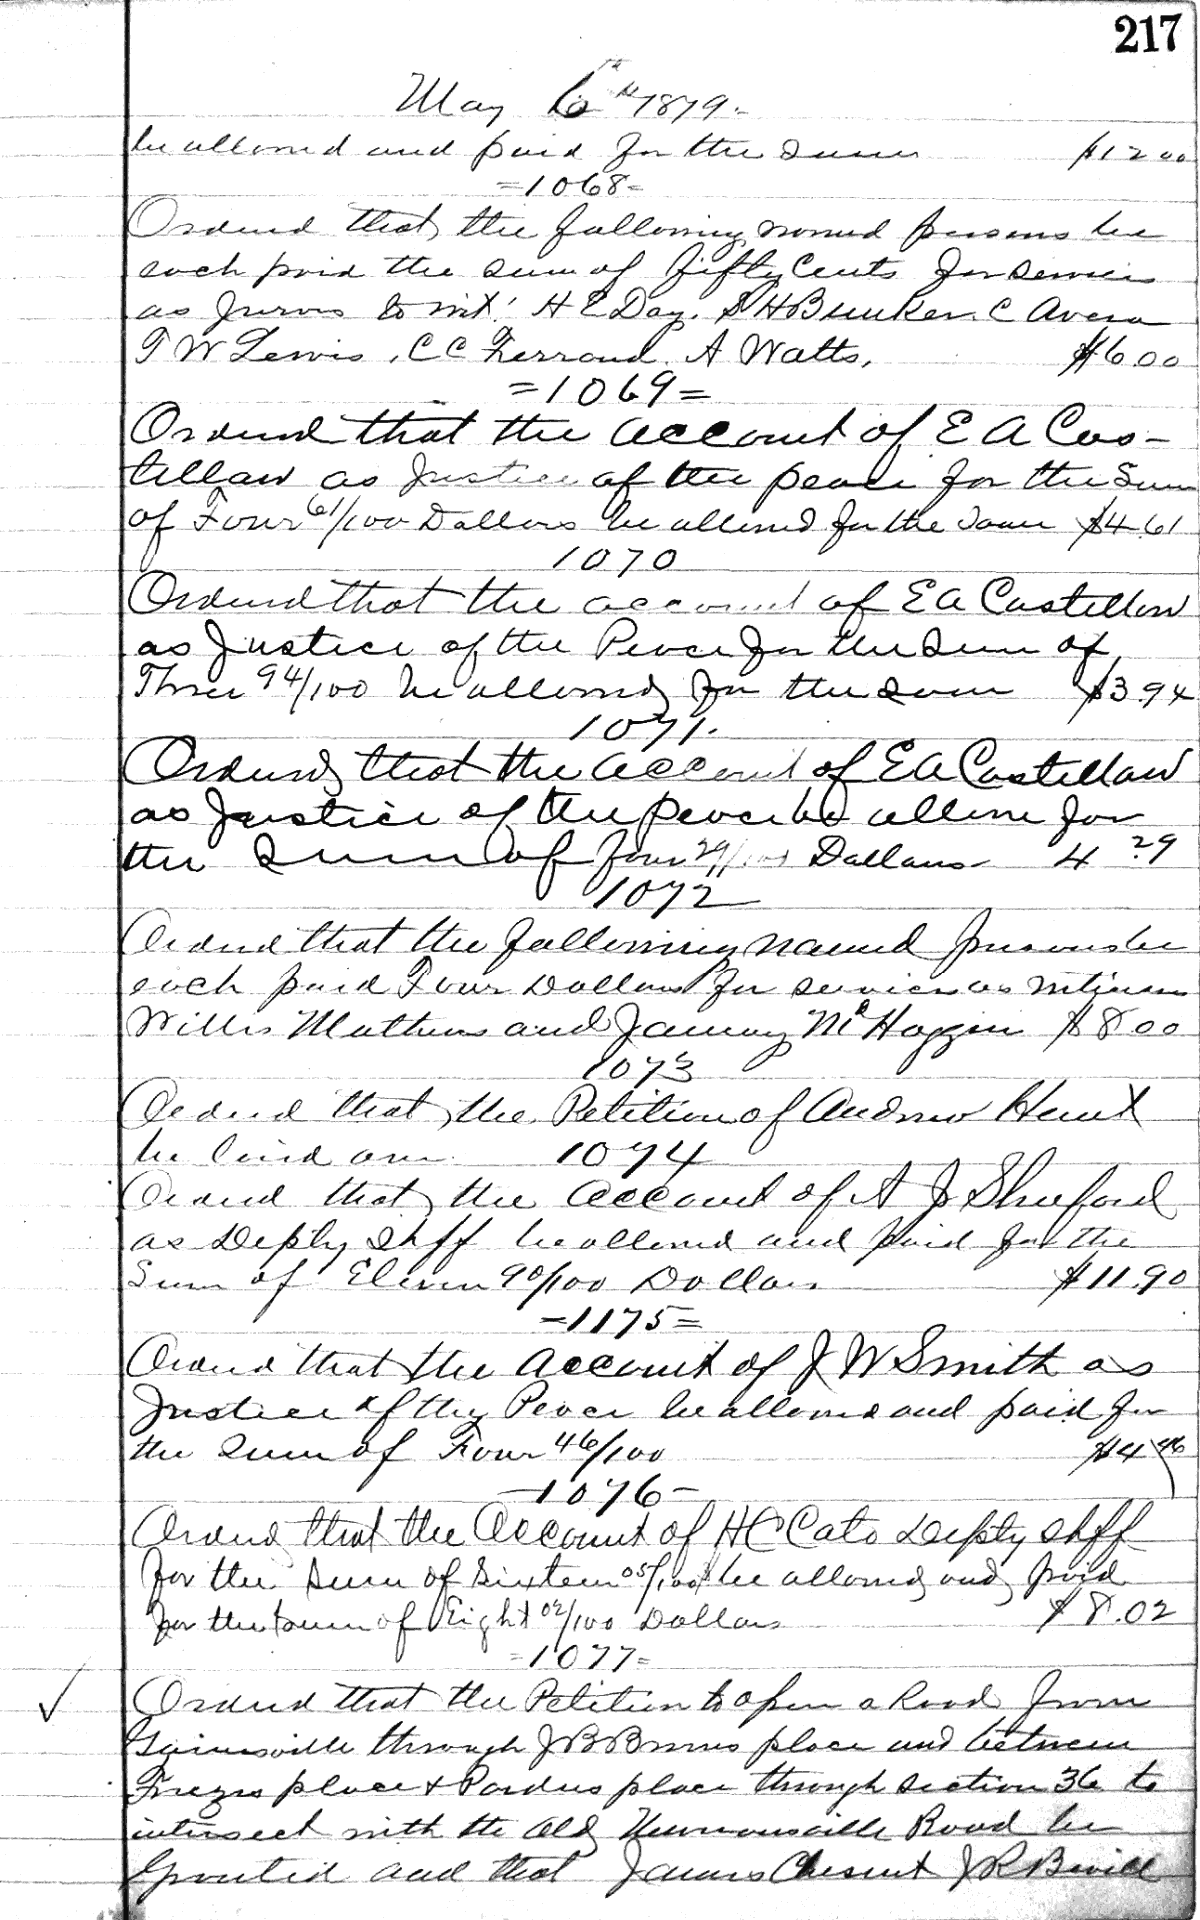 217
May 6th 1879.
be allowed and paid for the Sum $12 00
=1068=
Ordered that the following named persons be
each paid the sum of fifty Cents for services
as Jurors to wit: H E Day. S H Bunker. C Avera
T W Lewis, C C Ferrand. A Watts, $6.00
=1069=
Ordered that the account of E A Cas-
tellaw as Justice of the peace for the Sum
of Four 61/100 Dollars be allowed for the Same $4.61
1070
Ordered that the account of E A Castellaw
as Justice of the Peace for the Sum of
Three 94/100 be allowed for the same $3.94
1071.
Ordered that the account of E A Castellaw
as Justice of the peace be allone for
the Sum of four 29/100 Dollars 4 29
1072
Ordered that the following named persons be
each paid Four Dollars for services as witness
Willis Mathews and January McHaggin $8.00
1073
Ordered that the Petition of Andrew Hewit
be laid over 1074
Ordered that the account of A J Shuford
as Depty Shff be allowed and paid for the
Sum of Eleven 90/100 Dollars $11.90
=1175=
Ordered that the account of J W Smith as
Justice of the Peace be allowed and paid for
the Sum of Four 46/100 $4 46
-1076-
Ordered that the Account of H C Cato Depty Shff
for the Sum of Sixteen 05/100 be allowed and paid
for the sum of Eight 02/100 Dollars $8.02
=1077=
Ordered that the Petition to open a Road from
Gainsville through J B Browns place and between
place & Pardus place through section 36 to
intersect with the Old Newnansville Road be
Granted and that James Chesnut J R Bevill